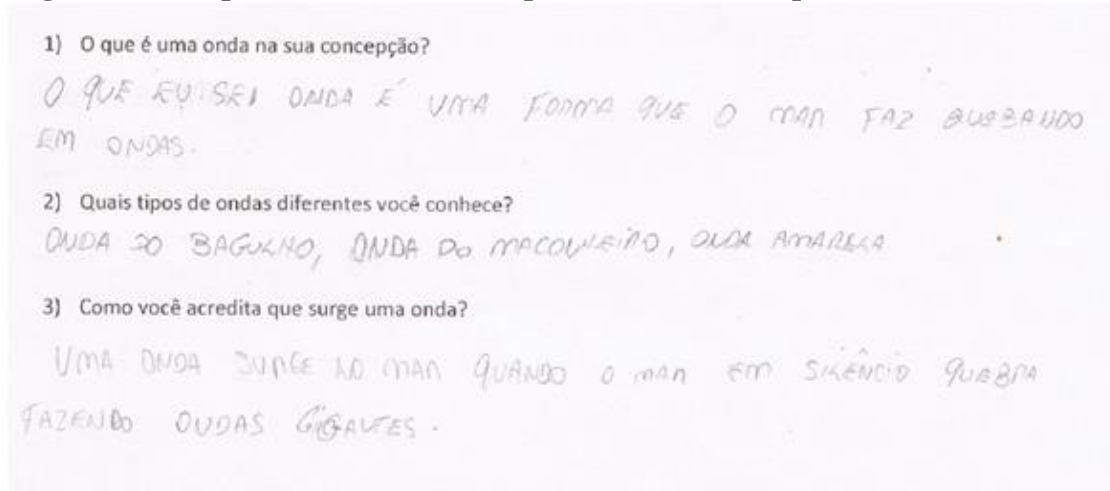 1) O que é uma onda na sua concepção?
O QUE EU SEI ONDA E UMA FORMA QUE O MAR FAZ QUEBANDO
EM ONDAS.
2) Quais tipos de ondas diferentes você conhece?
ONDA DO BAGULHO, ONDA DO MACONHEIRO, ONDA AMARELA
3) Como você acredita que surge uma onda?
UMA ONDA SURGE NO MAR QUANDO O MAR EM SILÊNCIO QUEBRA
FAZENDO ONDAS GIGANTES.